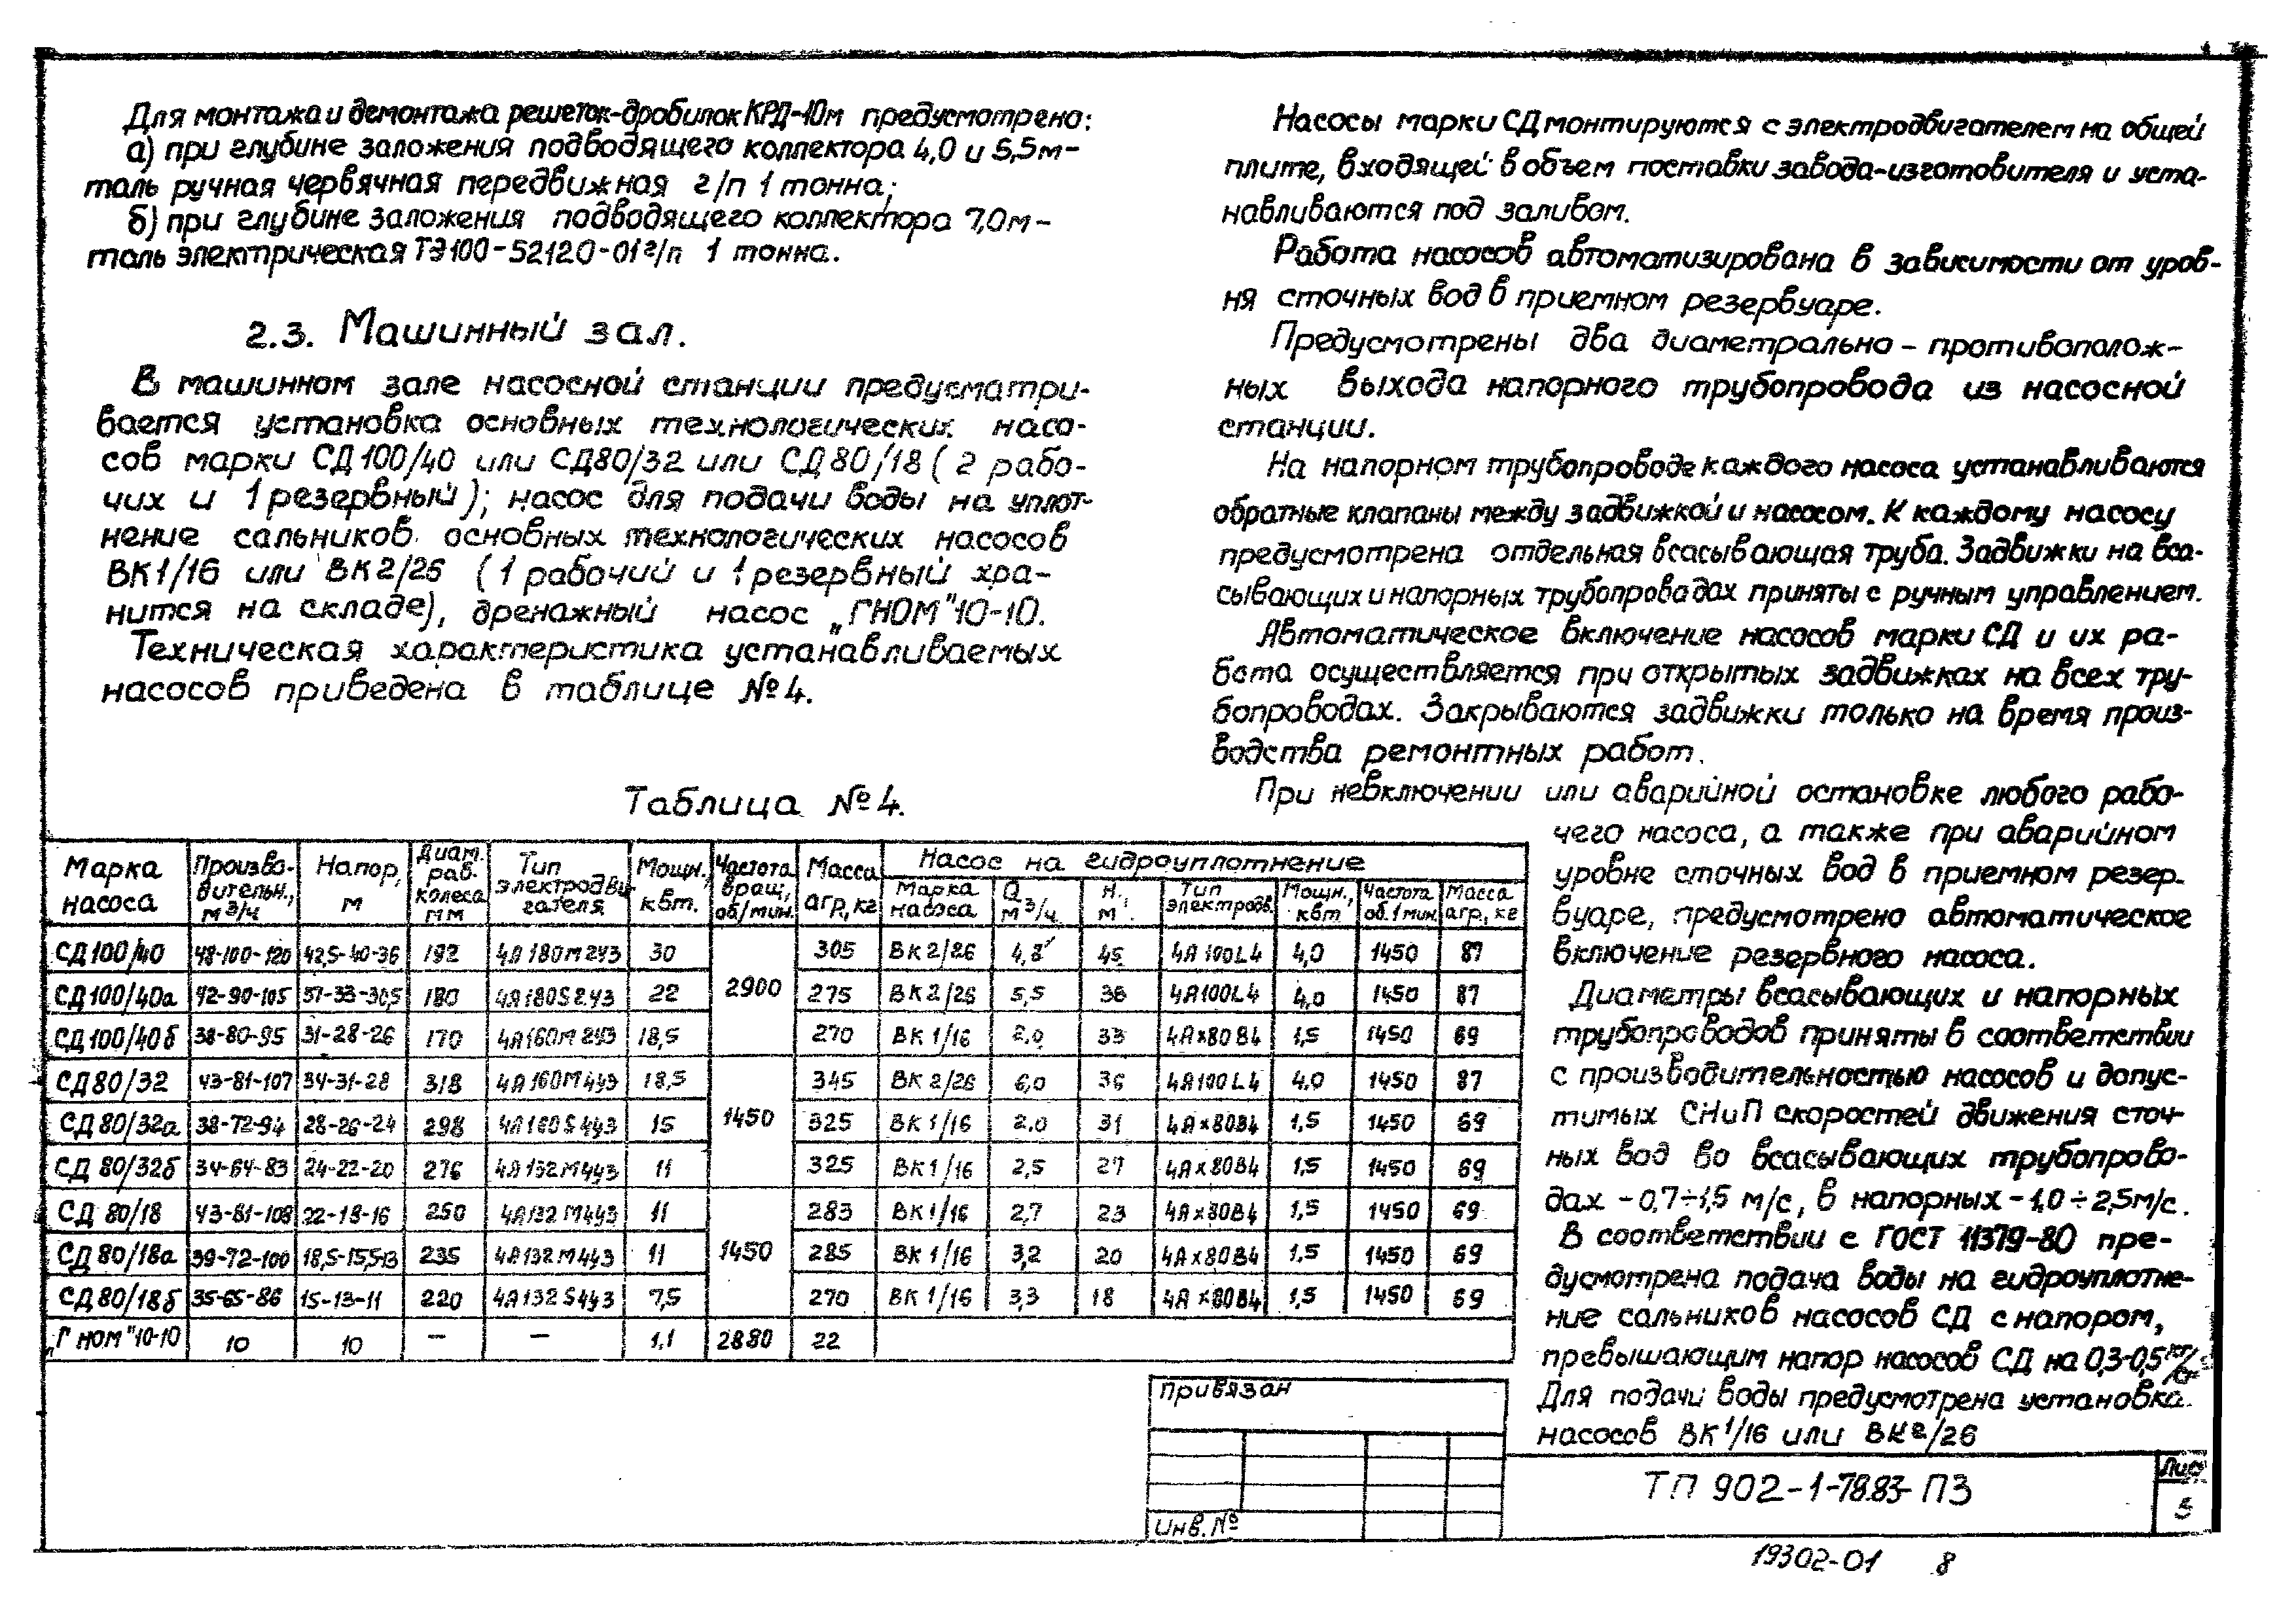 Для монтажа и демонтажа решеток-дробилок КРД-10м предусмотрено:
а) при глубине заложения подводящего коллектора 4,0 и 5,5м-
таль ручная червячная передвижная г/п 1 тонна;
б) при глубине заложения подводящего коллектора 7,0м-
таль электрическая ТЭ100-52120-01 г/п 1 тонна.
2.3. Машинный зал.
В машинном зале насосной станции предусматри-
вается установка основных технологических насо-
сов марки СД100/40 или СД80/32 или СД80/18 (2 рабо-
чих и 1 резервный); насос для подачи воды на уплот-
нение сальников основных технологических насосов
ВК1/16 или ВК2/26 (1 рабочий и 1 резервный хра-
нится на складе), дренажный насос „ГНОМ"10-10.
Техническая характеристика устанавливаемых
насосов приведена в таблице №4.
Таблица №4.
Марка насоса | Произво-дительн., м3/ч | Напор, м | Диам. раб. колеса мм | Тип электродви-гателя | Мощн., квт. | Частота вращ, об/мин. | Масса агр, кг | Насос на гидроуплотнение
Марка насоса | Q м3/ч | Н, м | Тип электродв. | Мощн., квт | Частота об. 1 мин. | Масса агр., кг
СД100/40 | 48-100-120 | 42,5-40-36 | 192 | 4А180М2У3 | 30 | 2900 | 305 | ВК2/26 | 4,8 | 45 | 4А100L4 | 4,0 | 1450 | 87
СД100/40а | 42-90-105 | 37-33-30,5 | 180 | 4А180S2У3 | 22 | 275 | ВК2/26 | 5,5 | 38 | 4А100L4 | 4,0 | 1450 | 87
СД100/40б | 38-80-95 | 31-28-26 | 170 | 4А160М2У3 | 18,5 | 270 | ВК1/16 | 2,0 | 33 | 4Ах80В4 | 1,5 | 1450 | 69
СД80/32 | 43-81-107 | 34-31-28 | 318 | 4А160М4У3 | 18,5 | 1450 | 345 | ВК2/26 | 6,0 | 36 | 4А100L4 | 4,0 | 1450 | 87
СД80/32а | 38-72-94 | 28-26-24 | 298 | 4А160S4У3 | 15 | 325 | ВК1/16 | 2.0 | 31 | 4Ах80В4 | 1,5 | 1450 | 69
СД80/32б | 34-64-83 | 24-22-20 | 276 | 4А132М4У3 | 11 | 325 | ВК1/16 | 2,5 | 27 | 4Ах80В4 | 1,5 | 1450 | 69
СД80/18 | 43-81-108 | 22-18-16 | 250 | 4А132М4У3 | 11 | 1450 | 283 | ВК1/16 | 2,7 | 23 | 4Ах80В4 | 1,5 | 1450 | 69
СД80/18а | 39-72-100 | 18,5-15,5-13 | 235 | 4А132М4У3 | 11 | 285 | ВК1/16 | 3,2 | 20 | 4Ах80В4 | 1.5 | 1450 | 69
СД80/18б | 35-65-86 | 15-13-11 | 220 | 4А132S4У3 | 7,5 | 270 | ВК1/16 | 3,3 | 18 | 4Ах80В4 | 1,5 | 1450 | 69
„Гном"10-10 | 10 | 10 | — | — | 1,1 | 2880 | 22
Насосы марки СД монтируются с электродвигателем на общей
плите, входящей в объем поставки завода-изготовителя и уста-
навливаются под заливом.
Работа насосов автоматизирована в зависимости от уров-
ня сточных вод в приемном резервуаре.
Предусмотрены два диаметрально-противополож-
ных выхода напорного трубопровода из насосной
станции.
На напорном трубопроводе каждого насоса устанавливаются
обратные клапаны между задвижкой и насосом. К каждому насосу
предусмотрена отдельная всасывающая труба. Задвижки на вса-
сывающих и напорных трубопроводах приняты с ручным управлением.
Автоматическое включение насосов марки СД и их ра-
бота осуществляется при открытых задвижках на всех тру-
бопроводах. Закрываются задвижки только на время произ-
водства ремонтных работ.
При невключении или аварийной остановке любого рабо-
чего насоса, а также при аварийном
уровне сточных вод в приемном резер-
вуаре, предусмотрено автоматическое
включение резервного насоса.
Диаметры всасывающих и напорных
трубопроводов приняты в соответствии
с производительностью насосов и допус-
тимых СНиП скоростей движения сточ-
ных вод во всасывающих трубопрово-
дах - 0,7÷1,5 м/с, в напорных - 1,0÷2,5м/с.
В соответствии с ГОСТ 11379-80 пре-
дусмотрена подача воды на гидроуплотне-
ние сальников насосов СД с напором,
превышающим напор насосов СД на 0,3-0,5
Для подачи воды предусмотрена установка
насосов ВК1/16 или ВК2/26
Привязан
Инв. №
ТП 902-1-78.83-ПЗ
Лист
5
19302-01 8